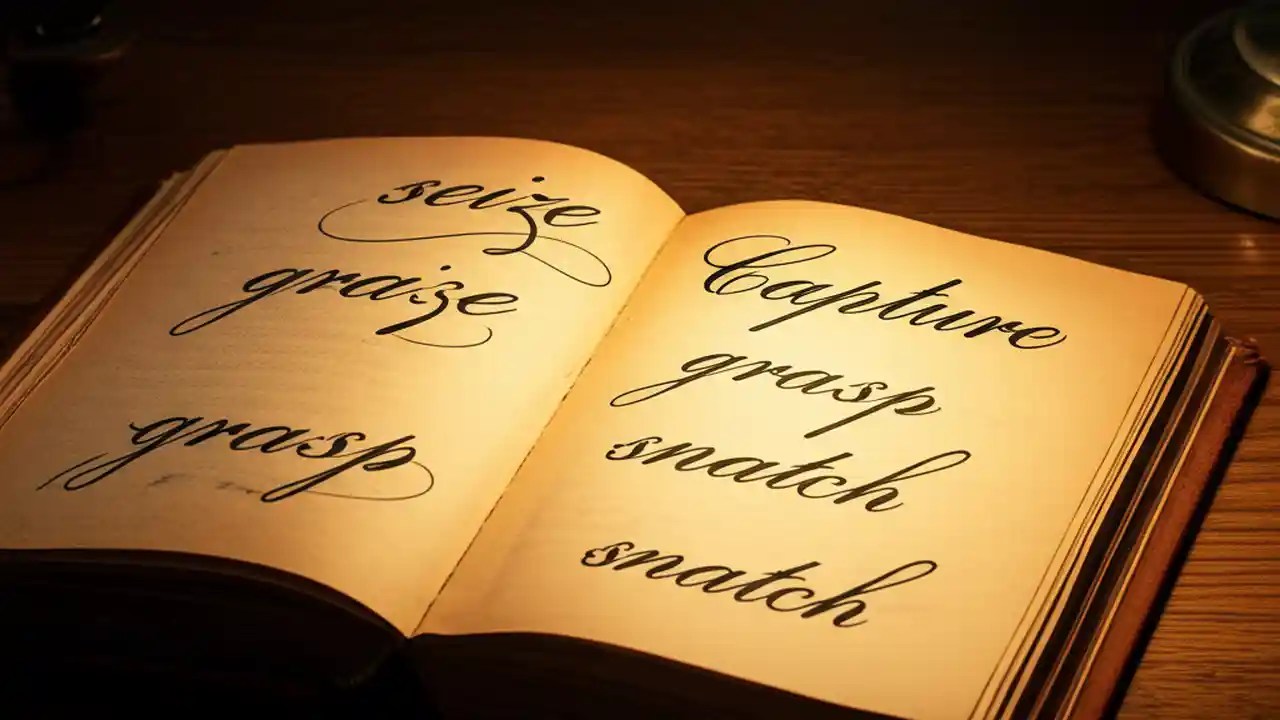 seize
graize
grasp
Capture
grasp
snatch
snatch